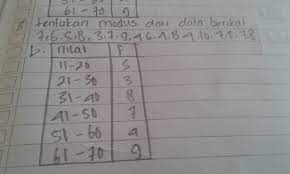 61-70 9
tentukan modus dari data berikut
7,6,5,8,3,7,9,4,6,4,8,4,10,7,3,7,8
b. nilai F
11-20 5
21-30 3
31-40 8
41-50 7
51-60 4
61-70 9